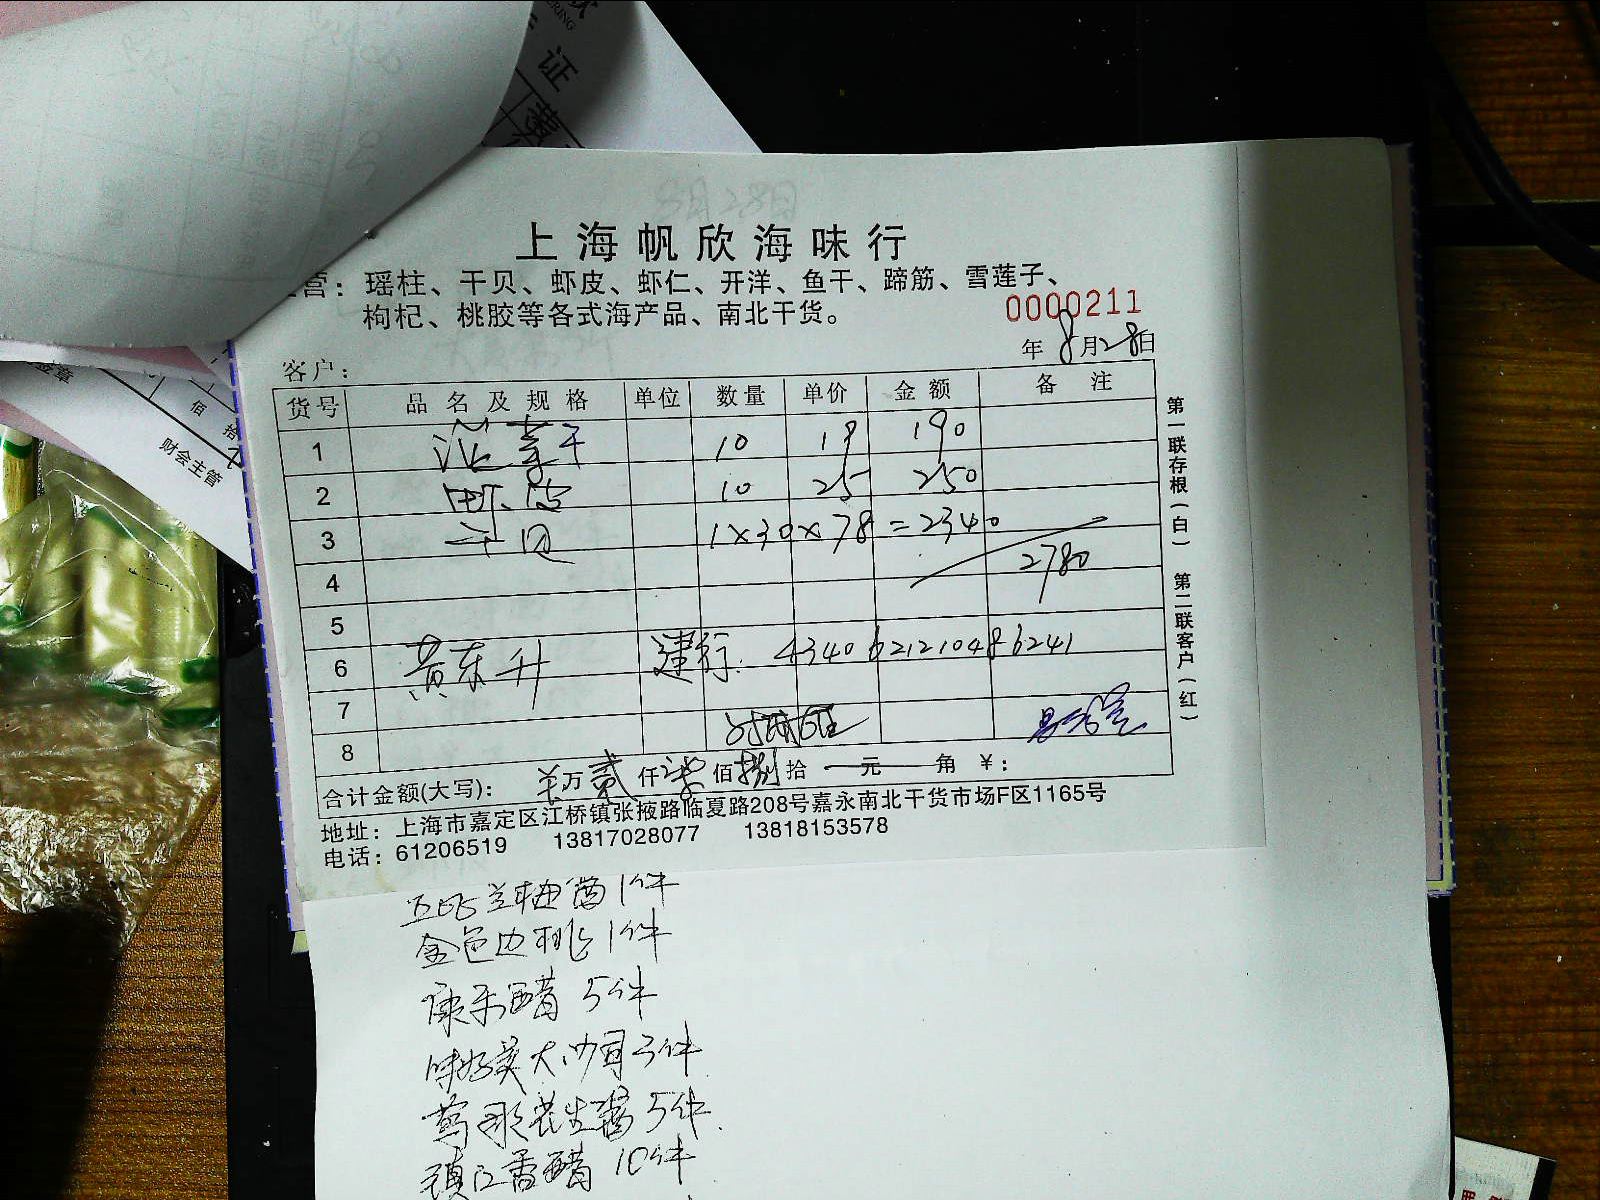 证
上海帆欣海味行
营：瑶柱、干贝、虾皮、虾仁、开洋、鱼干、蹄筋、雪莲子、
枸杞、桃胶等各式海产品、南北干货。
0000211
年 8月28日
客户：
货号 品名及规格 单位 数量 单价 金额 备注
1 干 10 19 190
2 10 25 250
3 干贝 1×30×78=2340
4 2780
5
6 黄东升 建行. 4340 621210486241
7
8
合计金额(大写)： 万贰仟柒佰捌拾 元 角 ￥：
地址：上海市嘉定区江桥镇张掖路临夏路208号嘉永南北干货市场F区1165号
电话：61206519 13817028077 13818153578
第一联存根(白) 第二联客户(红)
签章
佰 拾
财会主管
梅酱1件
金色边桃1件
康乐醋 5件
味好美大 3件
花生酱5件
镇江香醋 10件